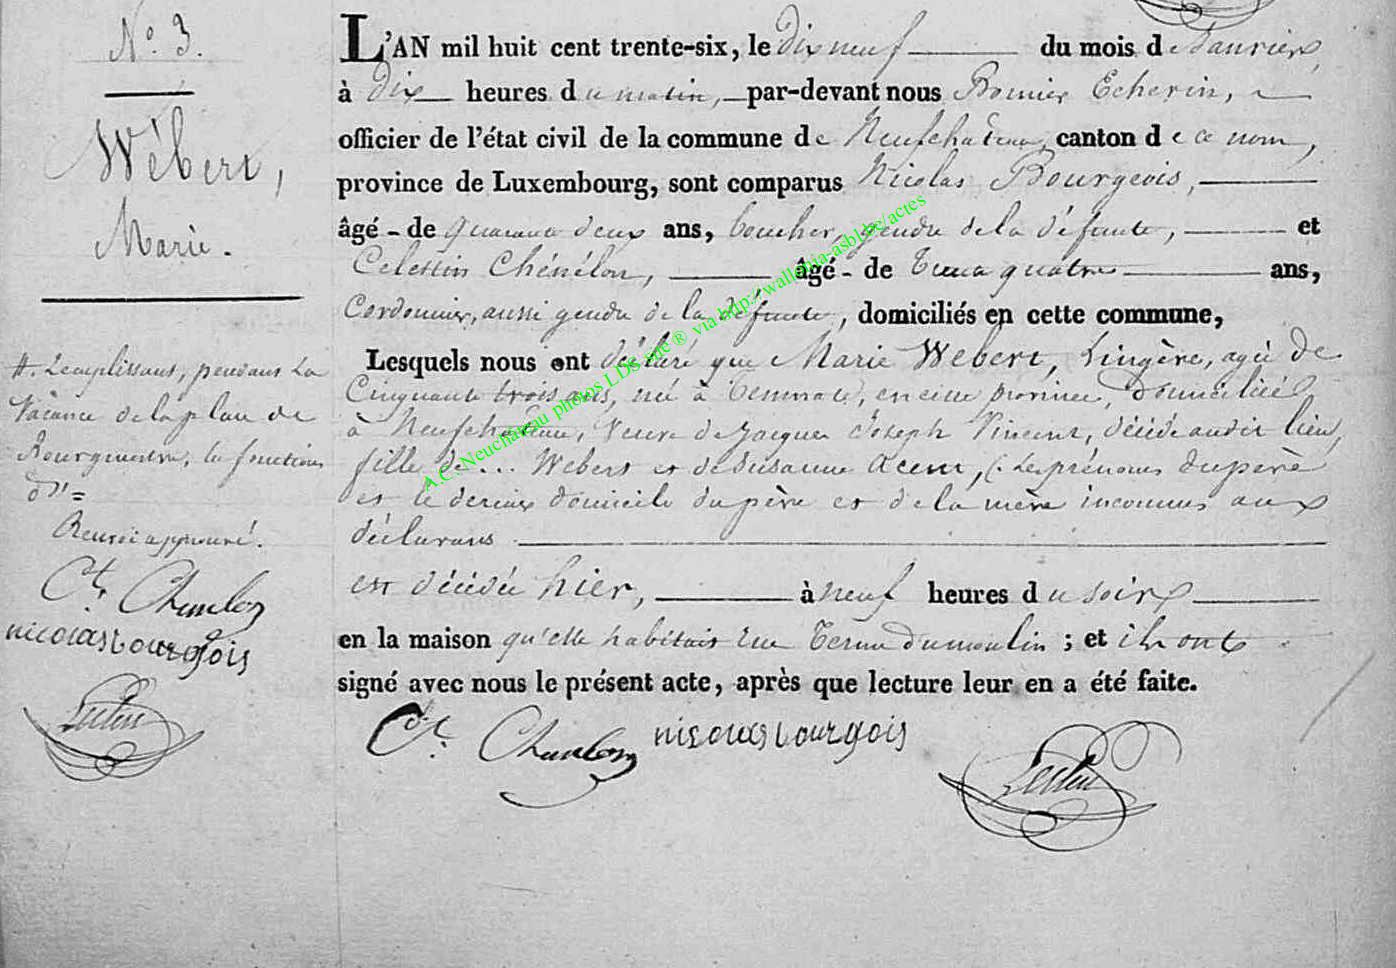 N° 3.
Wébert,
Marie.
#. Remplissant, pendant la
vacance de la place de
Bourgmestre, les fonctions
d'=
Renvoi approuvé.
Ct. Chenelon
nicolas bourgois
L'AN mil huit cent trente-six, le dix neuf du mois de Janvier,
à dix heures du matin, par-devant nous Premier Echevin, #
officier de l'état civil de la commune de Neufchâteau, canton de ce nom,
province de Luxembourg, sont comparus Nicolas Bourgeois,
âgé - de quarante deux ans, boucher, gendre de la défunte, et
Celestin Chénélon, âgé - de trente quatre ans,
Cordonnier, aussi gendre de la défunte, domiciliés en cette commune,
Lesquels nous ont déclaré que Marie Webert, Lingère, agée de
Cinquante trois ans, née à en cette province, domiciliée
à Neufchateau, Veuve de Jacques Joseph Vincent, décédé audit lieu,
fille de... Webert et de Susanne (. Les prénoms du père
et le dernier domicile du père et de la mère inconnus aux
déclarans
est décédée hier, à neuf heures du soir
en la maison qu'elle habitait rue du moulin ; et ils ont
signé avec nous le présent acte, après que lecture leur en a été faite.
Ct. Chenelon nicolas bourgois
A.C. Neuchateau photos LDS sue ® via http://wallonia-asbl.be/actes